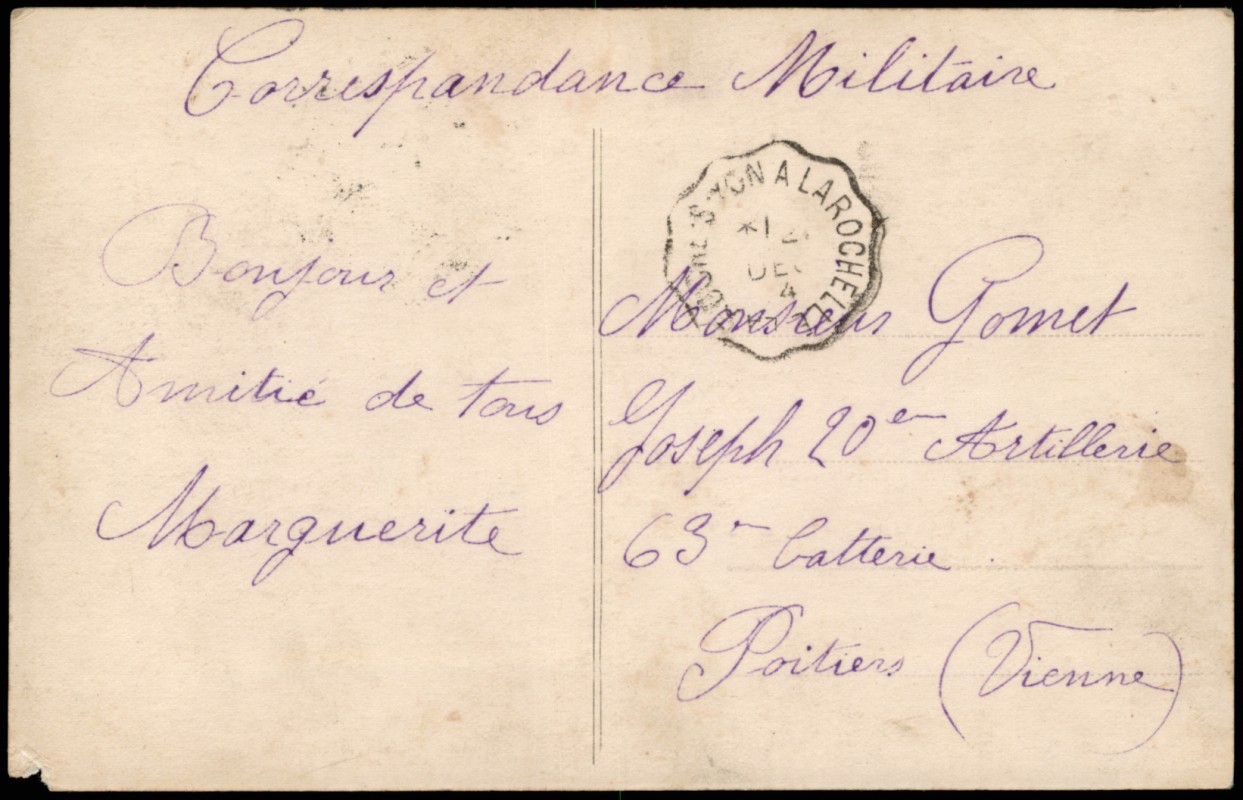 Correspandance Militaire
Bonjour et
Amitié de tous
Marguerite
YON A LAROCHELLE
DEC
4
Monsieur Gomet
Joseph 20em Artillerie
63m batterie
Poitiers (Vienne)